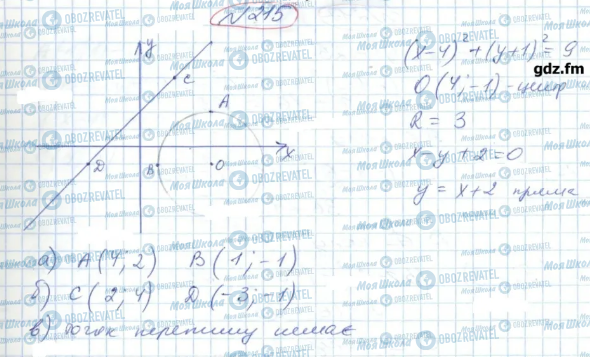 № 215
y
C
(x-4)² + (y+1)² = 9
gdz.fm
O (4; -1) - центр
A
R = 3
x
D
B
O
x - y + 2 = 0
y = x + 2 пряма
а) A (4; 2) B (1; -1)
б) C (2; 4) D (-3; -1)
в) точок перетину немає
Моя Школа
OBOZREVATEL